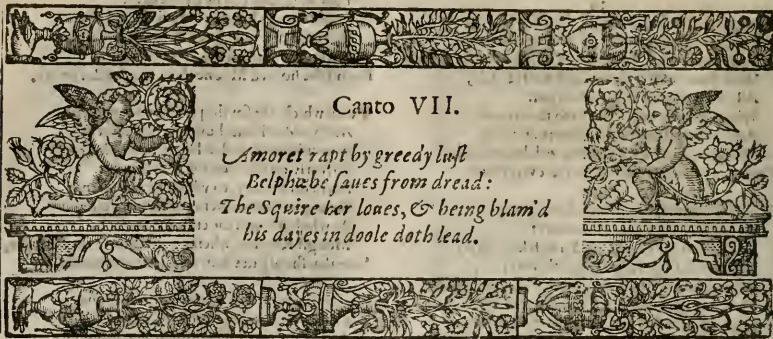 Canto VII.
Amoret rapt by greedy lust
Belphœbe saues from dread:
The Squire her loues, & being blam'd
his dayes in doole doth lead.